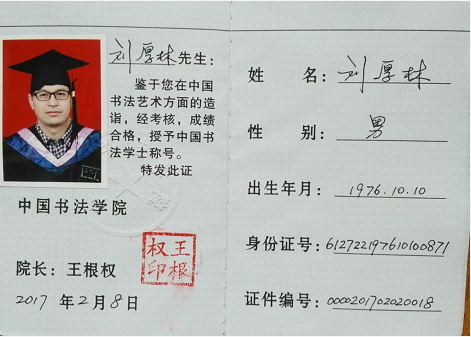 刘厚林先生：
鉴于您在中国
书法艺术方面的造
诣，经考核，成绩
合格，授予中国书
法学士称号。
特发此证
中国书法学院
院长：王根权
王根权印
2017年2月8日
姓 名：刘厚林
性 别：男
出生年月：1976.10.10
身份证号：612722197610100871
证件编号：0000201702020018